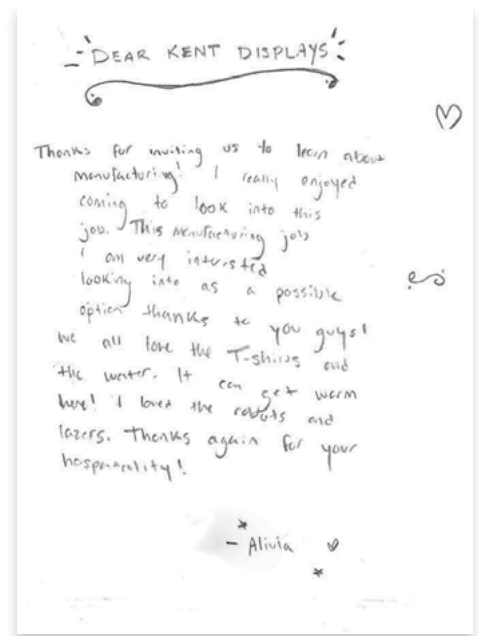 DEAR KENT DISPLAYS
Thanks for inviting us to learn about
manufacturing! I really enjoyed
coming to look into this
job. This manufacturing job
I am very interested
looking into as a possible
option thanks to you guys!
We all love the T-shirts and
the water. It can get warm
here! I loved the robots and
lazers. Thanks again for your
hospitality!
- Alivia